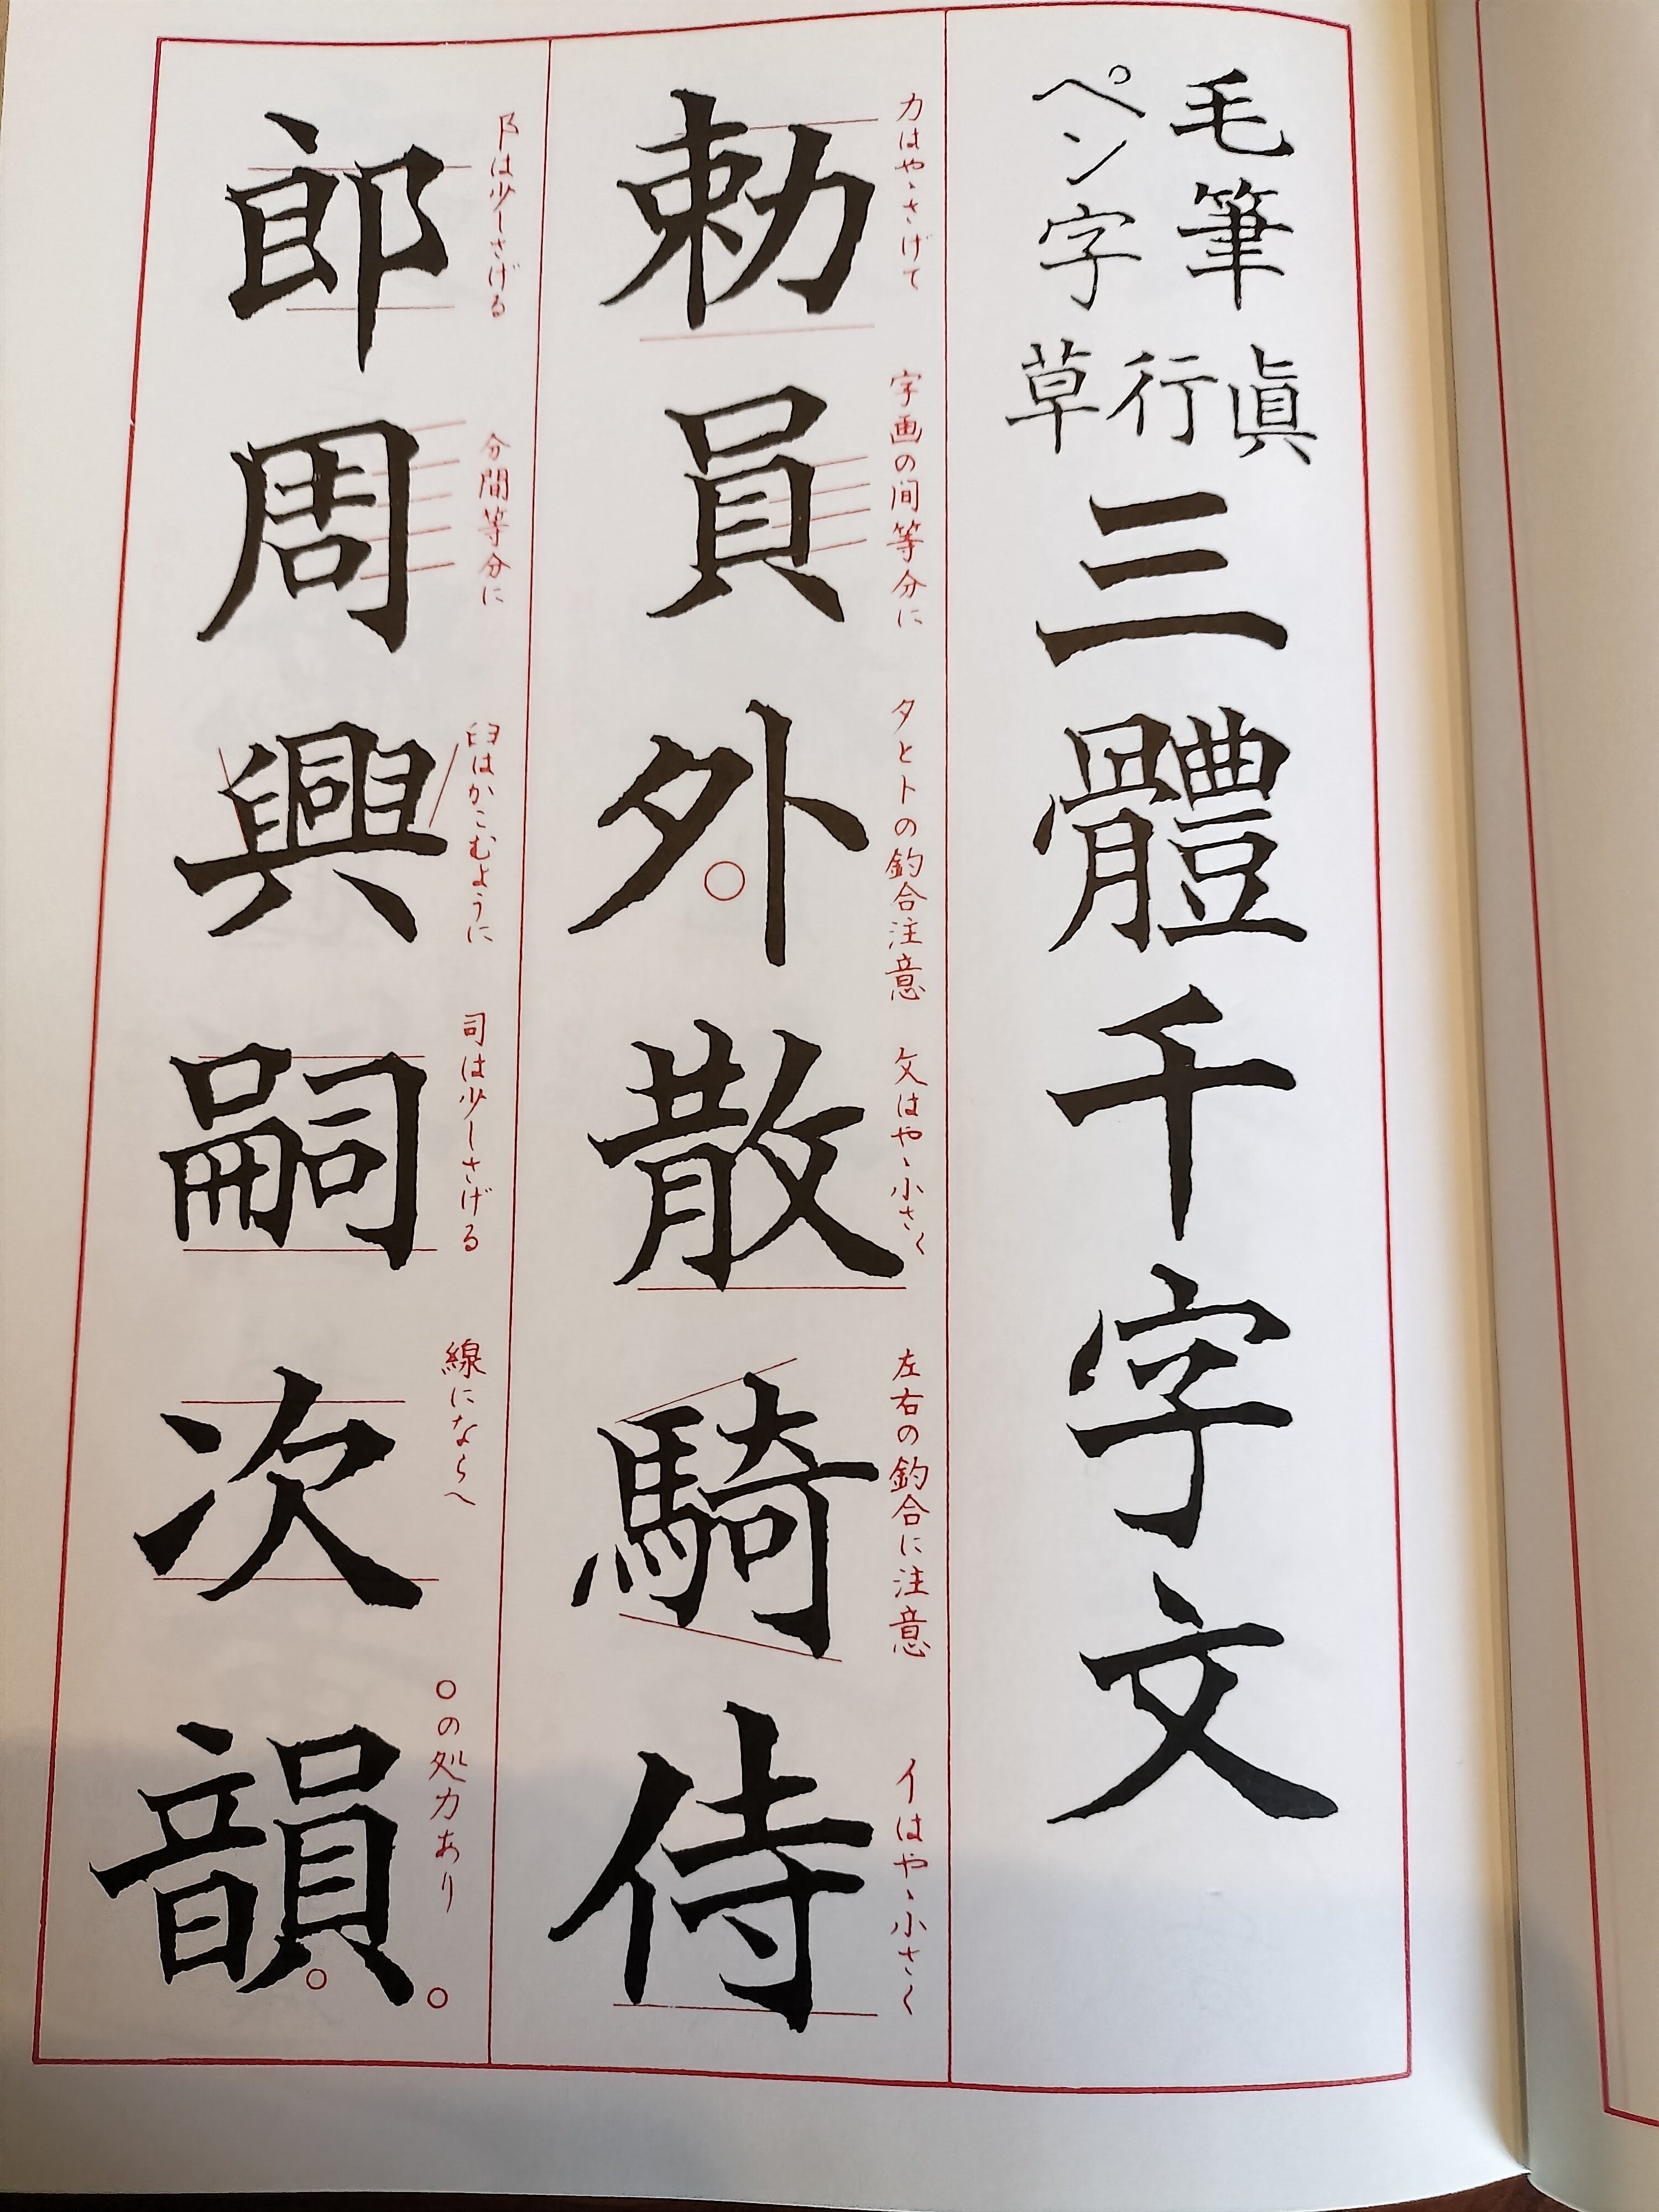 毛筆
ペン字
眞行草
三體千字文
力はやゝさげて
字画の间等分に
タとトの釣合注意
攵はやゝ小さく
左右の釣合に注意
イはやゝ小さく
勅員外散騎侍
阝は少しさげる
分間等分に
臼はかこむように
司は少しさげる
線にならへ
○の処力あり
郎周興嗣次韻